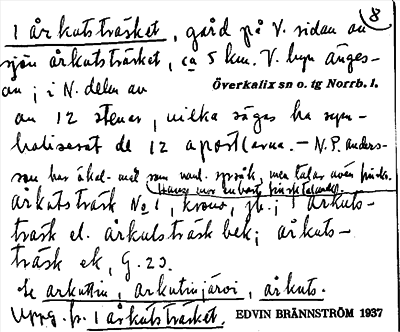 8
1 årkutsträsket, gård på V. sidan av
sjön årkutsträsket, ca 5 km. V. byn änges-
ån; i N. delen av
Överkalix sn o. tg Norrb. l.
av 12 stenar, vilka sägas ha sym-
boliserat de 12 apostlarna. — N. P. Anders-
son har åkal. mål som vanl. språk, men talar även finska.
Hans mor enbart finsktalande.
årkutsträsk No 1, krono, jb.; 1 årkuts-
träsk el. årkutsträsk bek; årkuts-
träsk ek, G. 23.
Se arkuttin, arkutinjärvi, årkuts.
Uppg. fr. 1 årkutsträsket.
EDVIN BRÄNNSTRÖM 1937